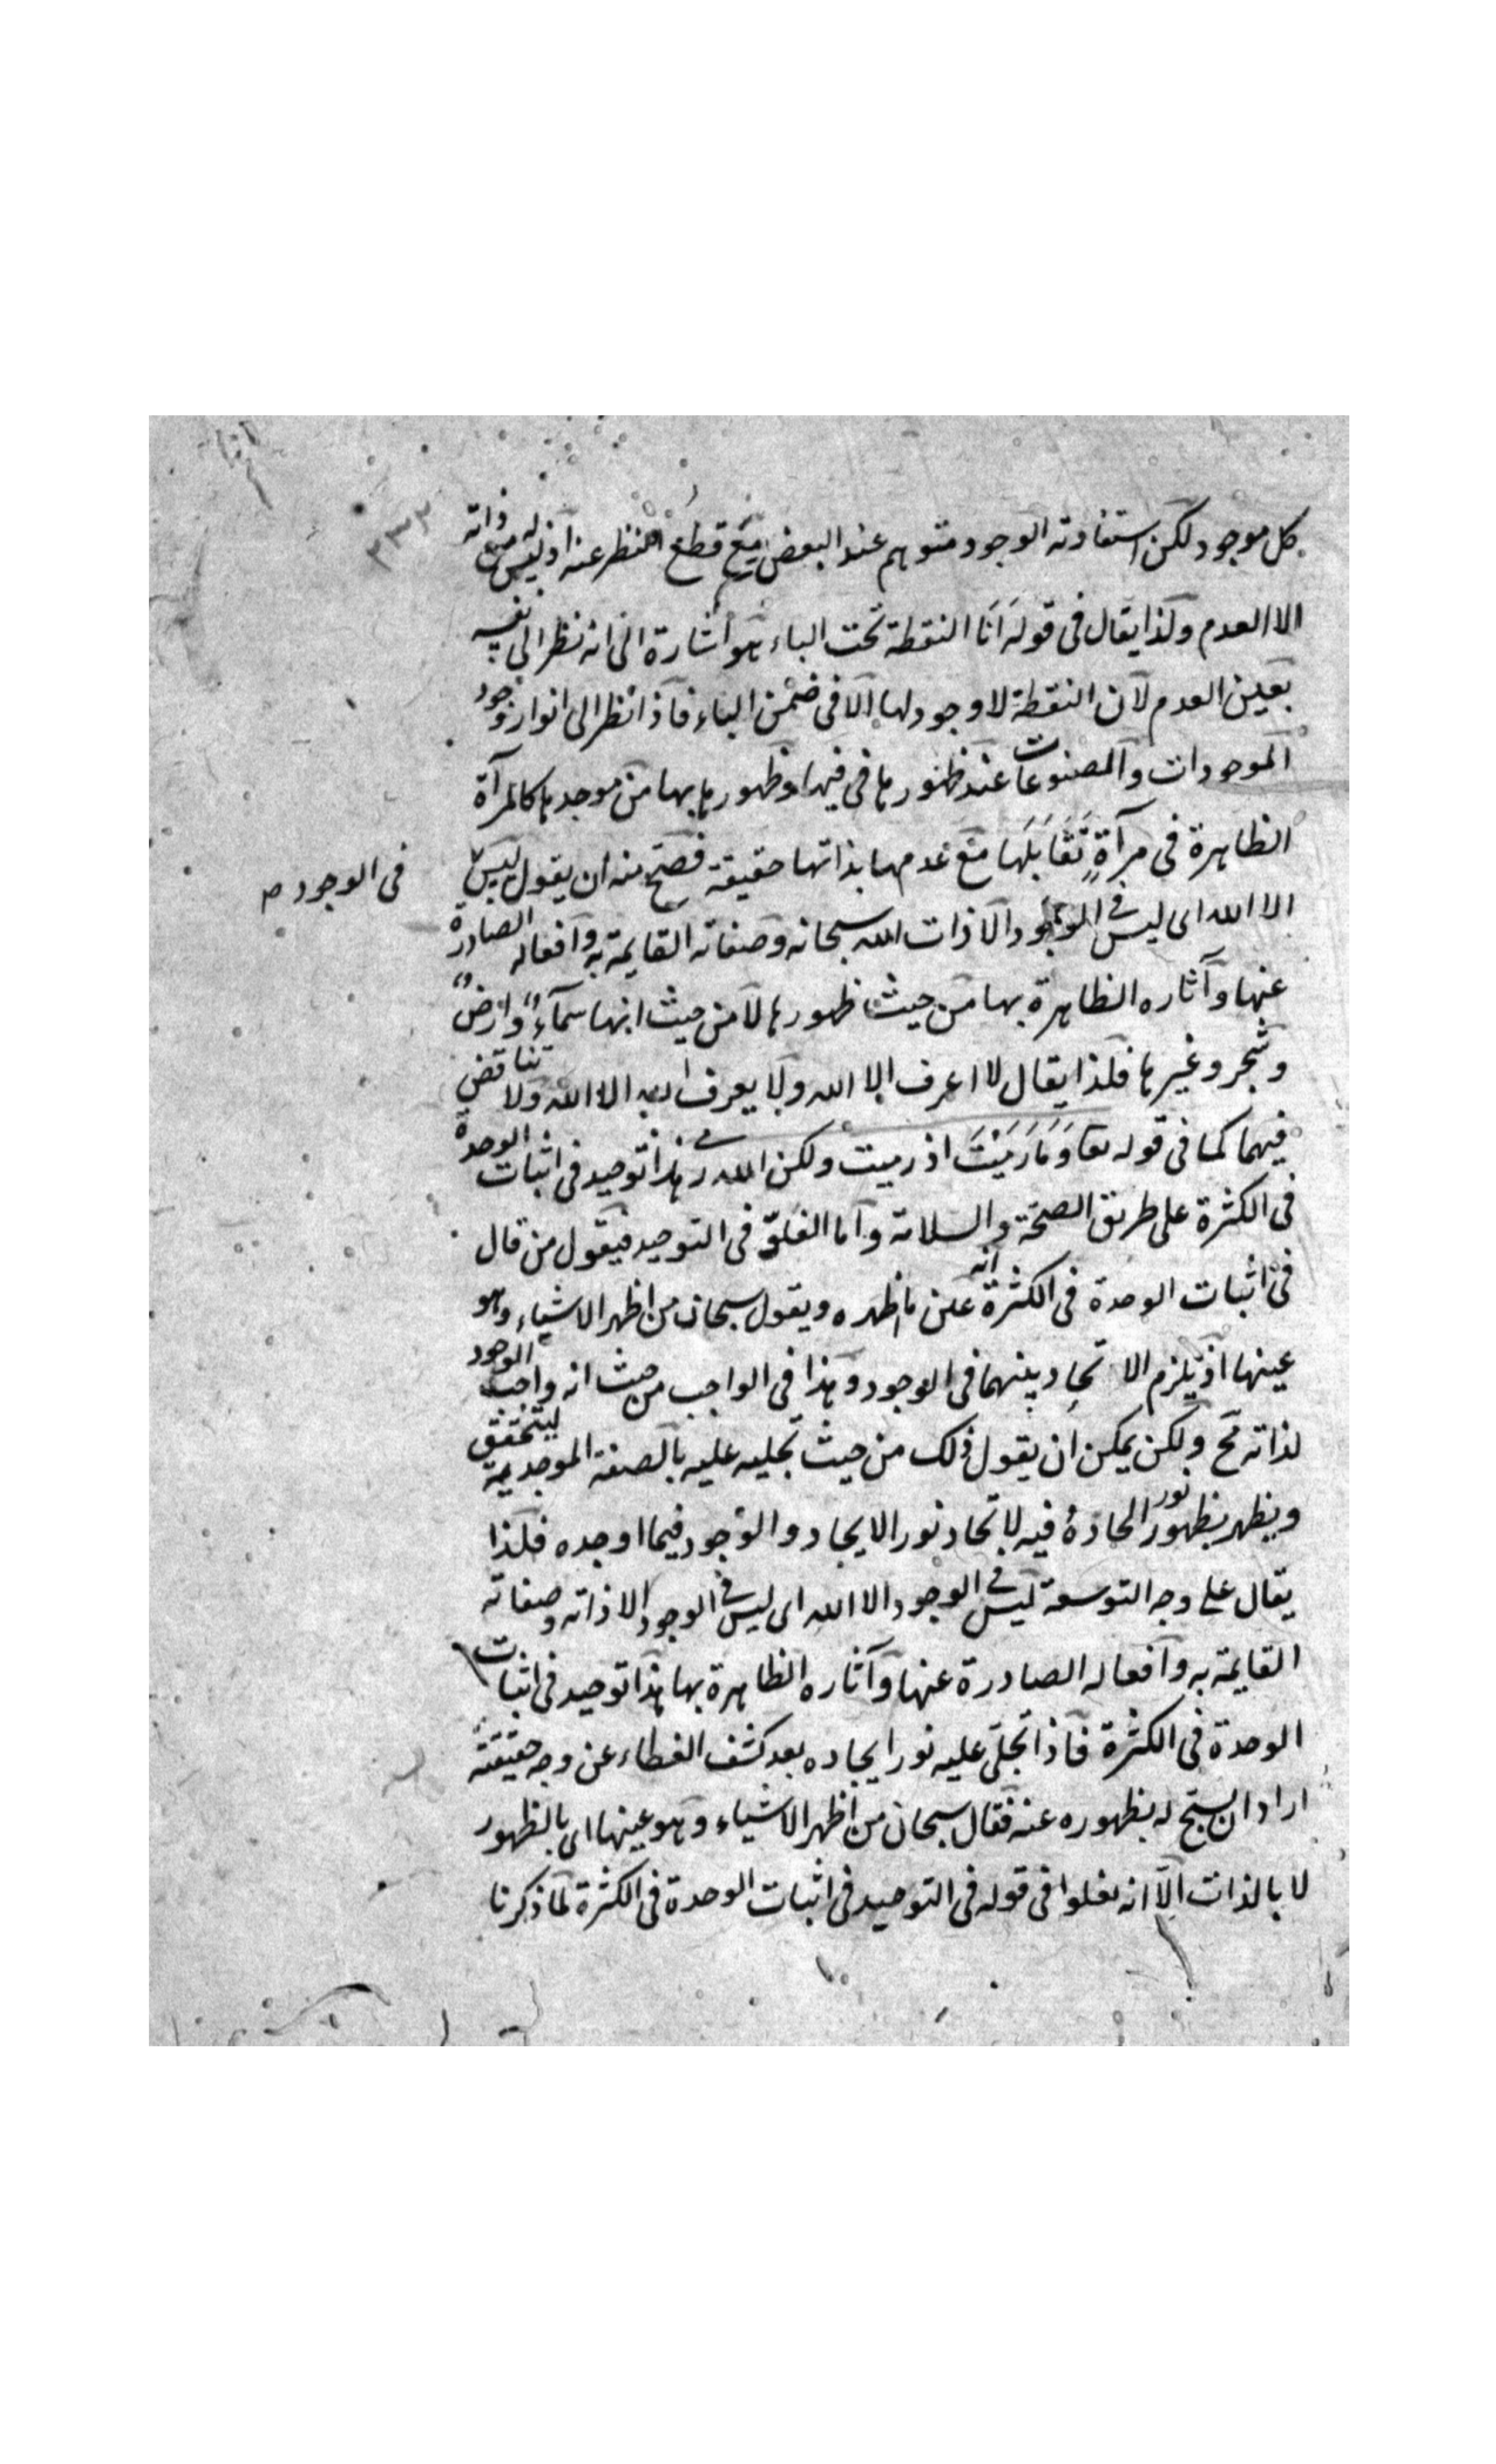 ٢٣٣
كل موجود لكن استفادته الوجود متوهم عند البعض مع قطع النظر عنه اذ ليس له من ذاته
الا العدم ولذا يقال فى قوله اَنَا النقطة تحت الباء هو اشارة الى انه نظر الى نفسه
بعين العدم لان النقطة لا وجود لها الا فى ضمن الباء فاذا نظر الى انوار وجود
الموجودات والمصنوعات عند ظهورها فى فيها وظهورها بها من موجدها كالمرآة
الظاهرة فى مرآةٍ تُقَابِلَها مع عدمها بذاتها حقيقة فصح منه ان يقول ليس
فى الوجود ص
الا الله اى ليس فى الوجود الا ذات الله سبحانه وصفاته القايمة به وافعاله الصادرة
عنها وآثاره الظاهرة بها من حيث ظهورها لا من حيث انها سمآءٌ وارضٌ
وشجر وغيرها فلذا يقال لا اعرف الا الله ولا يعرف الله الا الله ولا تناقض
فيهما كما فى قوله تعا وَمَا رَمَيْتَ اذ رميت ولكن الله رمى هذا توحيد فى اثبات الوحدة
فى الكثرة على طريق الصحة والسلامة واما الغلوّ فى التوحيد فيقول من قال
فى اثبات الوحدة فى الكثرة انه عين ما ظهره ويقول سبحان من اظهر الاشياء وهو
عينها اذ يلزم الاتحاد بينهما فى الوجود وهذا فى الواجب من حيث انه واجب الوجود
لذاته مح ولكن يمكن ان يقول ذلك من حيث تجليه عليه بالصفة الموجدية ليتحقق
ويظهر بظهور نور الحادث فيه لاتحاد نور الايجاد والوجود فيما اوجده فلذا
يقال على وجه التوسعة ليس فى الوجود الا الله اى ليس فى الوجود الا ذاته وصفاته
القايمة به وافعاله الصادرة عنها وآثاره الظاهرة بها هذا توحيد فى اثبات
الوحدة فى الكثرة فاذا تجلى عليه نور ايجاده بعد كشف الغطاء عن وجه حقيقته
اراد ان يسبح له بظهوره عنه فقال سبحان من اظهر الاشياء وهو عينها اى بالظهور
لا بالذات الا انه يغلوا فى قوله فى التوحيد فى اثبات الوحدة فى الكثرة لما ذكرنا